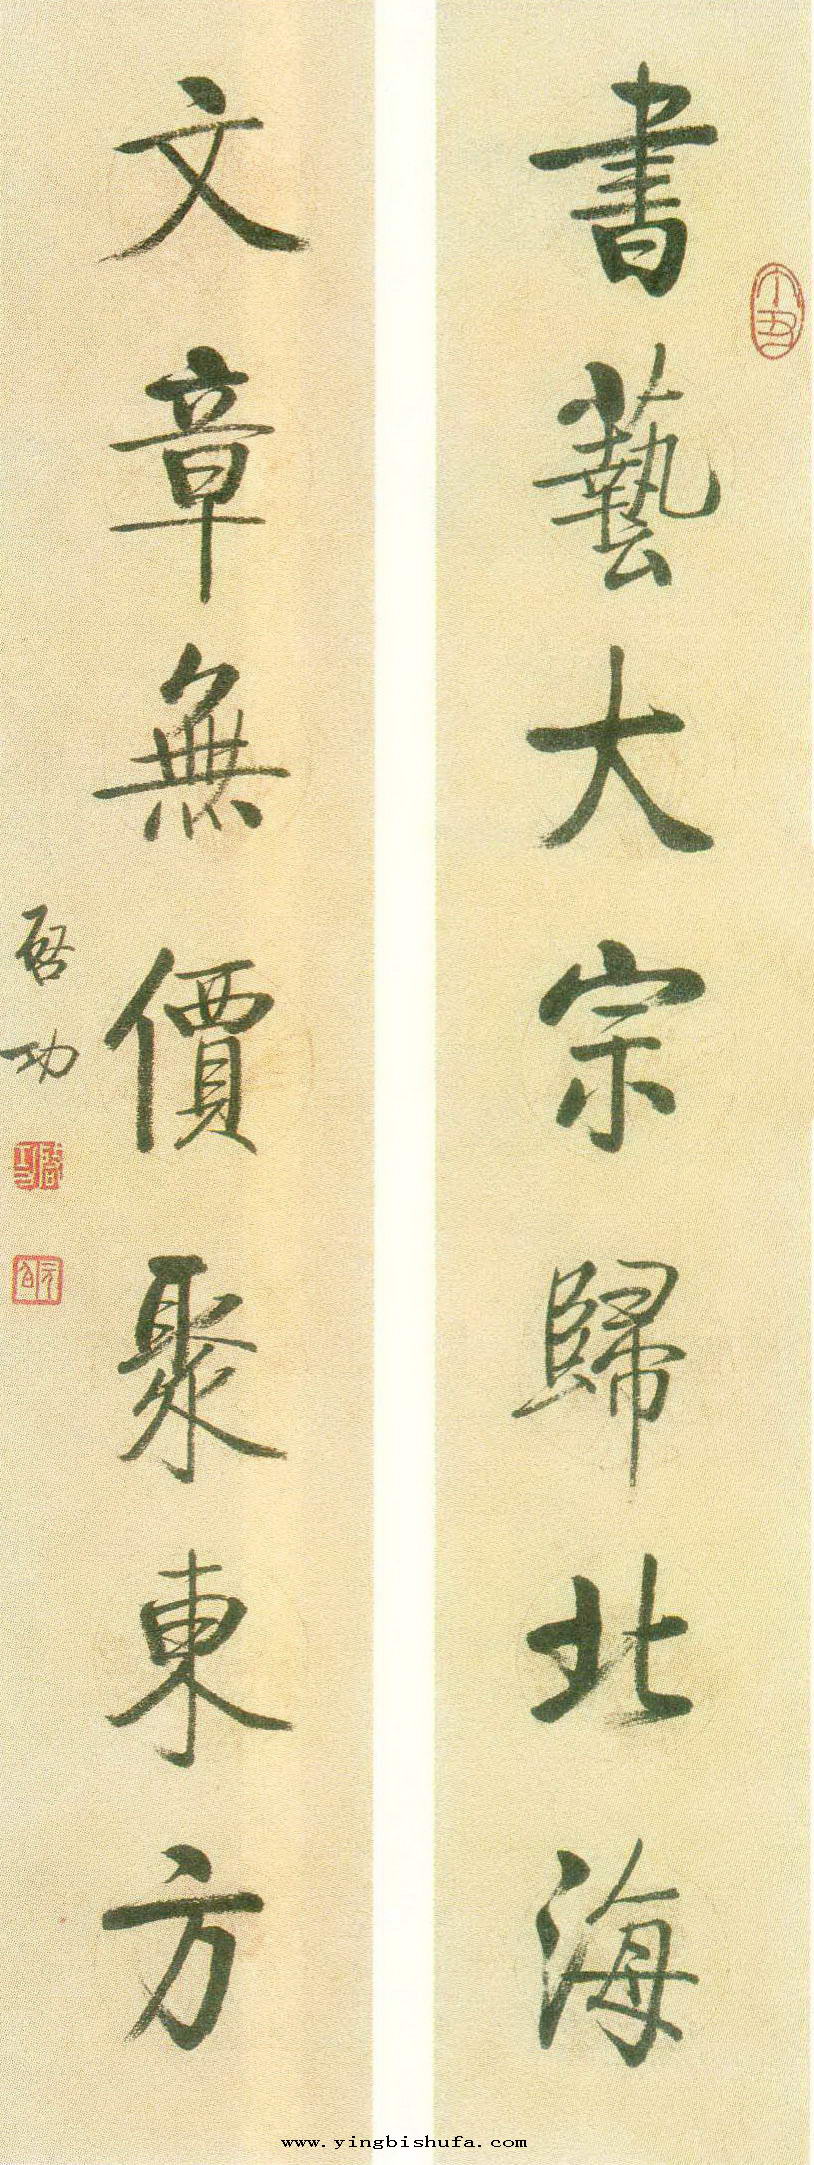 書藝大宗歸北海
文章無價聚東方
啓功
www.yingbishufa.com